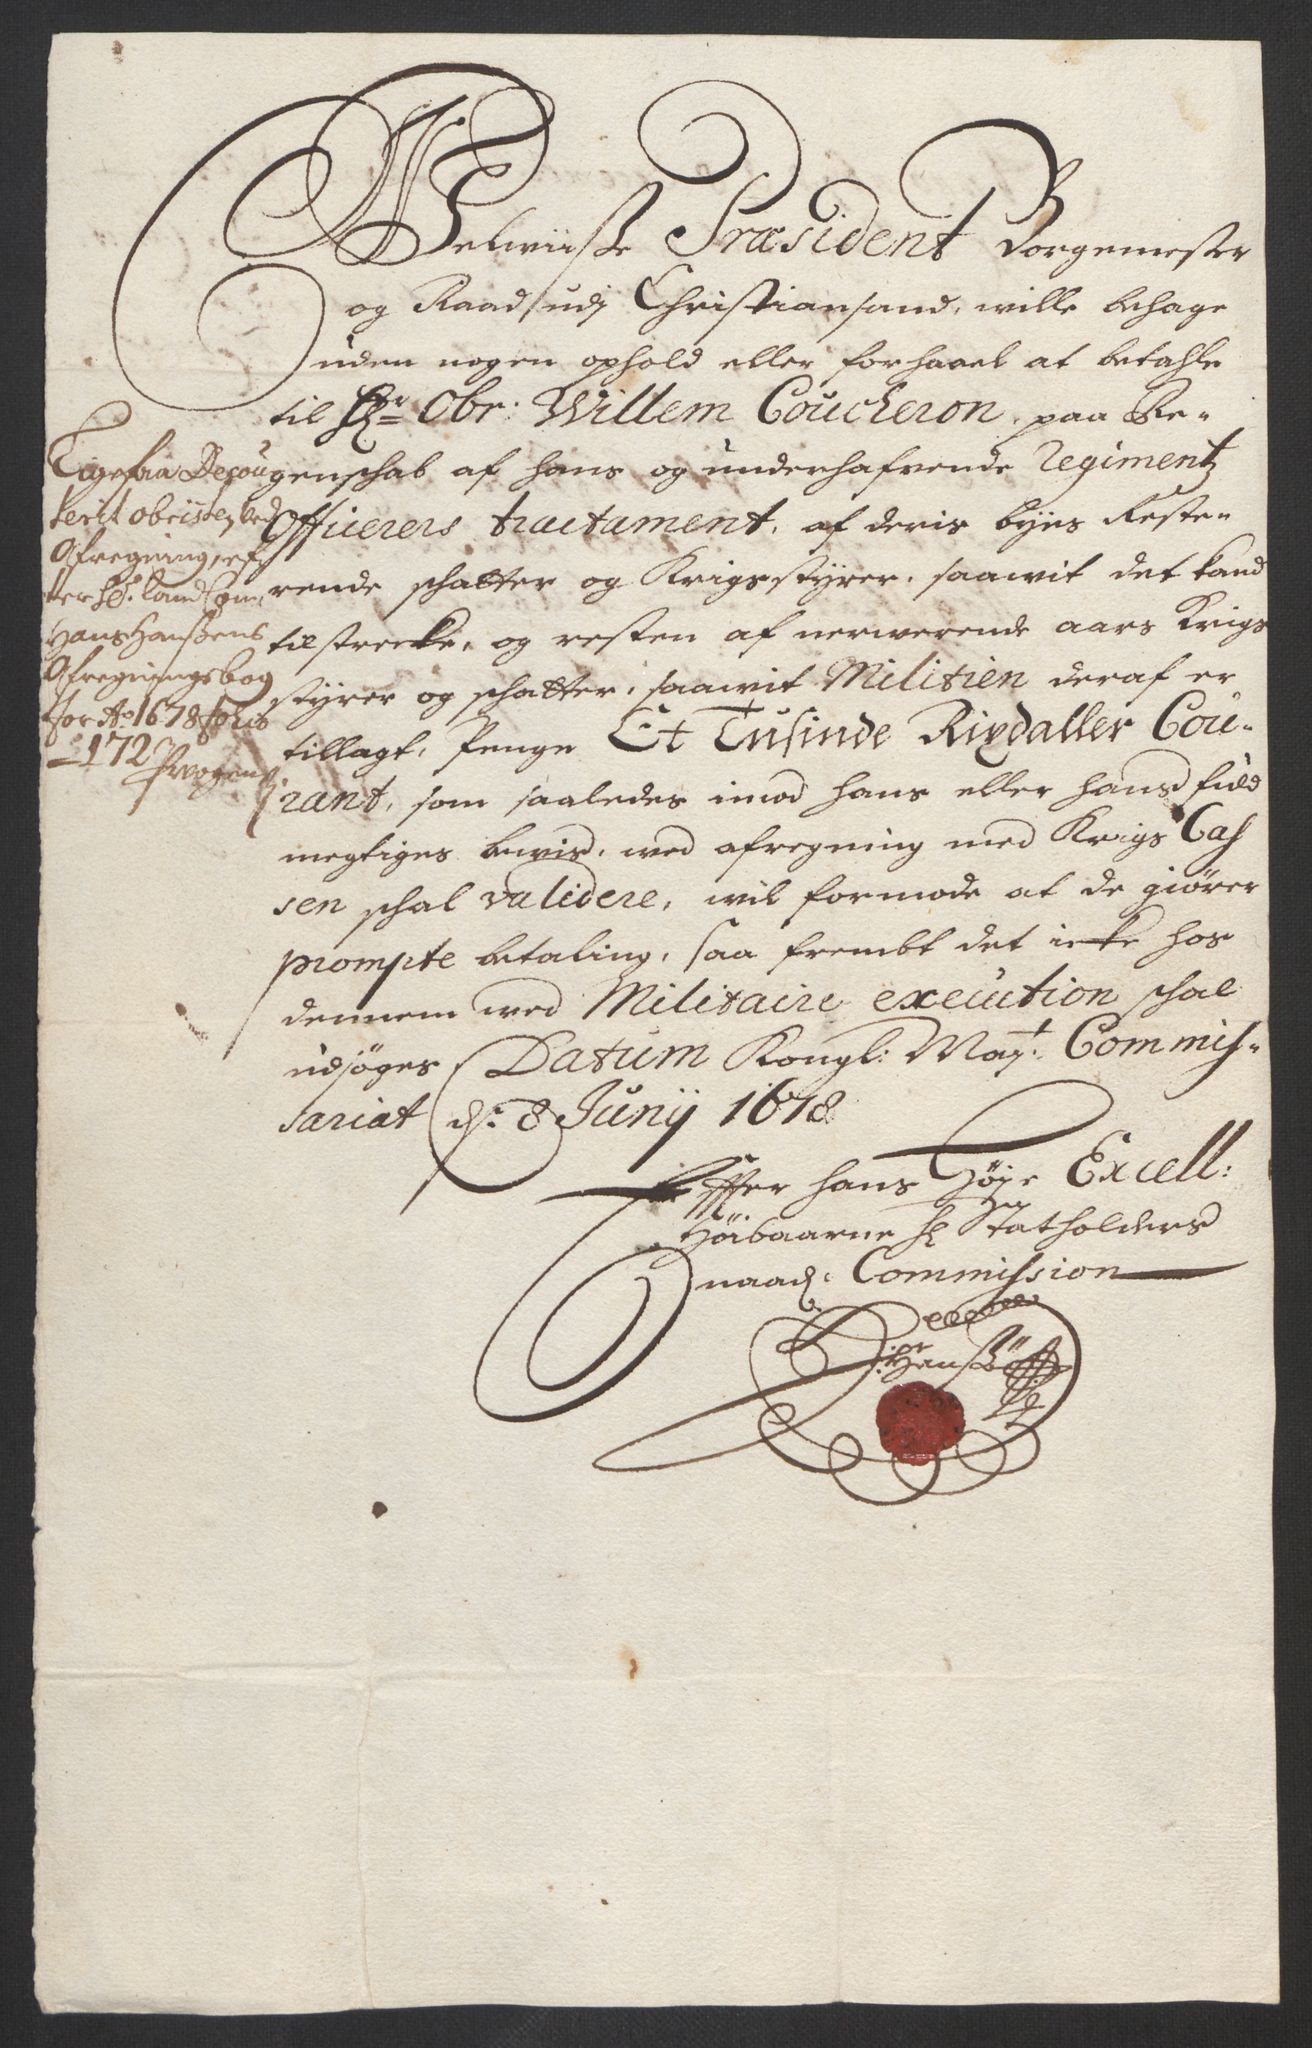 Welwiisse Præsident Borgemester
og Raad udj Christiansand, wille behage
uden nogen ophold eller forhaael at betahle
til Hr Obr: Willem Coucheron, paa Re-
genschab af hans og underhafvende Regimentz
Officerers tractament, af deris byes Reste-
rende schatter og Krigsstyrer, saawit det kand
tilstrecke, og resten af nerwerende aars Krigs
styrer og schatter, saawit Militien deraf er
tillagt, Penge Et Tusinde Rixdaller Cou-
rant, som saaledes imod hans eller hans fuld
megtiges bewis, wed afregning med Krigs Cas
sen schal validere, wil formode at de giører
prompte betaling, saa frembt det icke hos
dennem wed Militaire execution schal
udsøges, Datum Kongl: Mayt: Commis-
sariat d: 8 Junij 1678
Effter hans Høye Excell:
Høibaarne Hr Statholders
naad: Commission
Hanss
obristen ved
Afregning, ef-
ter Sl: land Com:
Hans Hanssens
Afregningsbog
for Ao 1678 folio
172